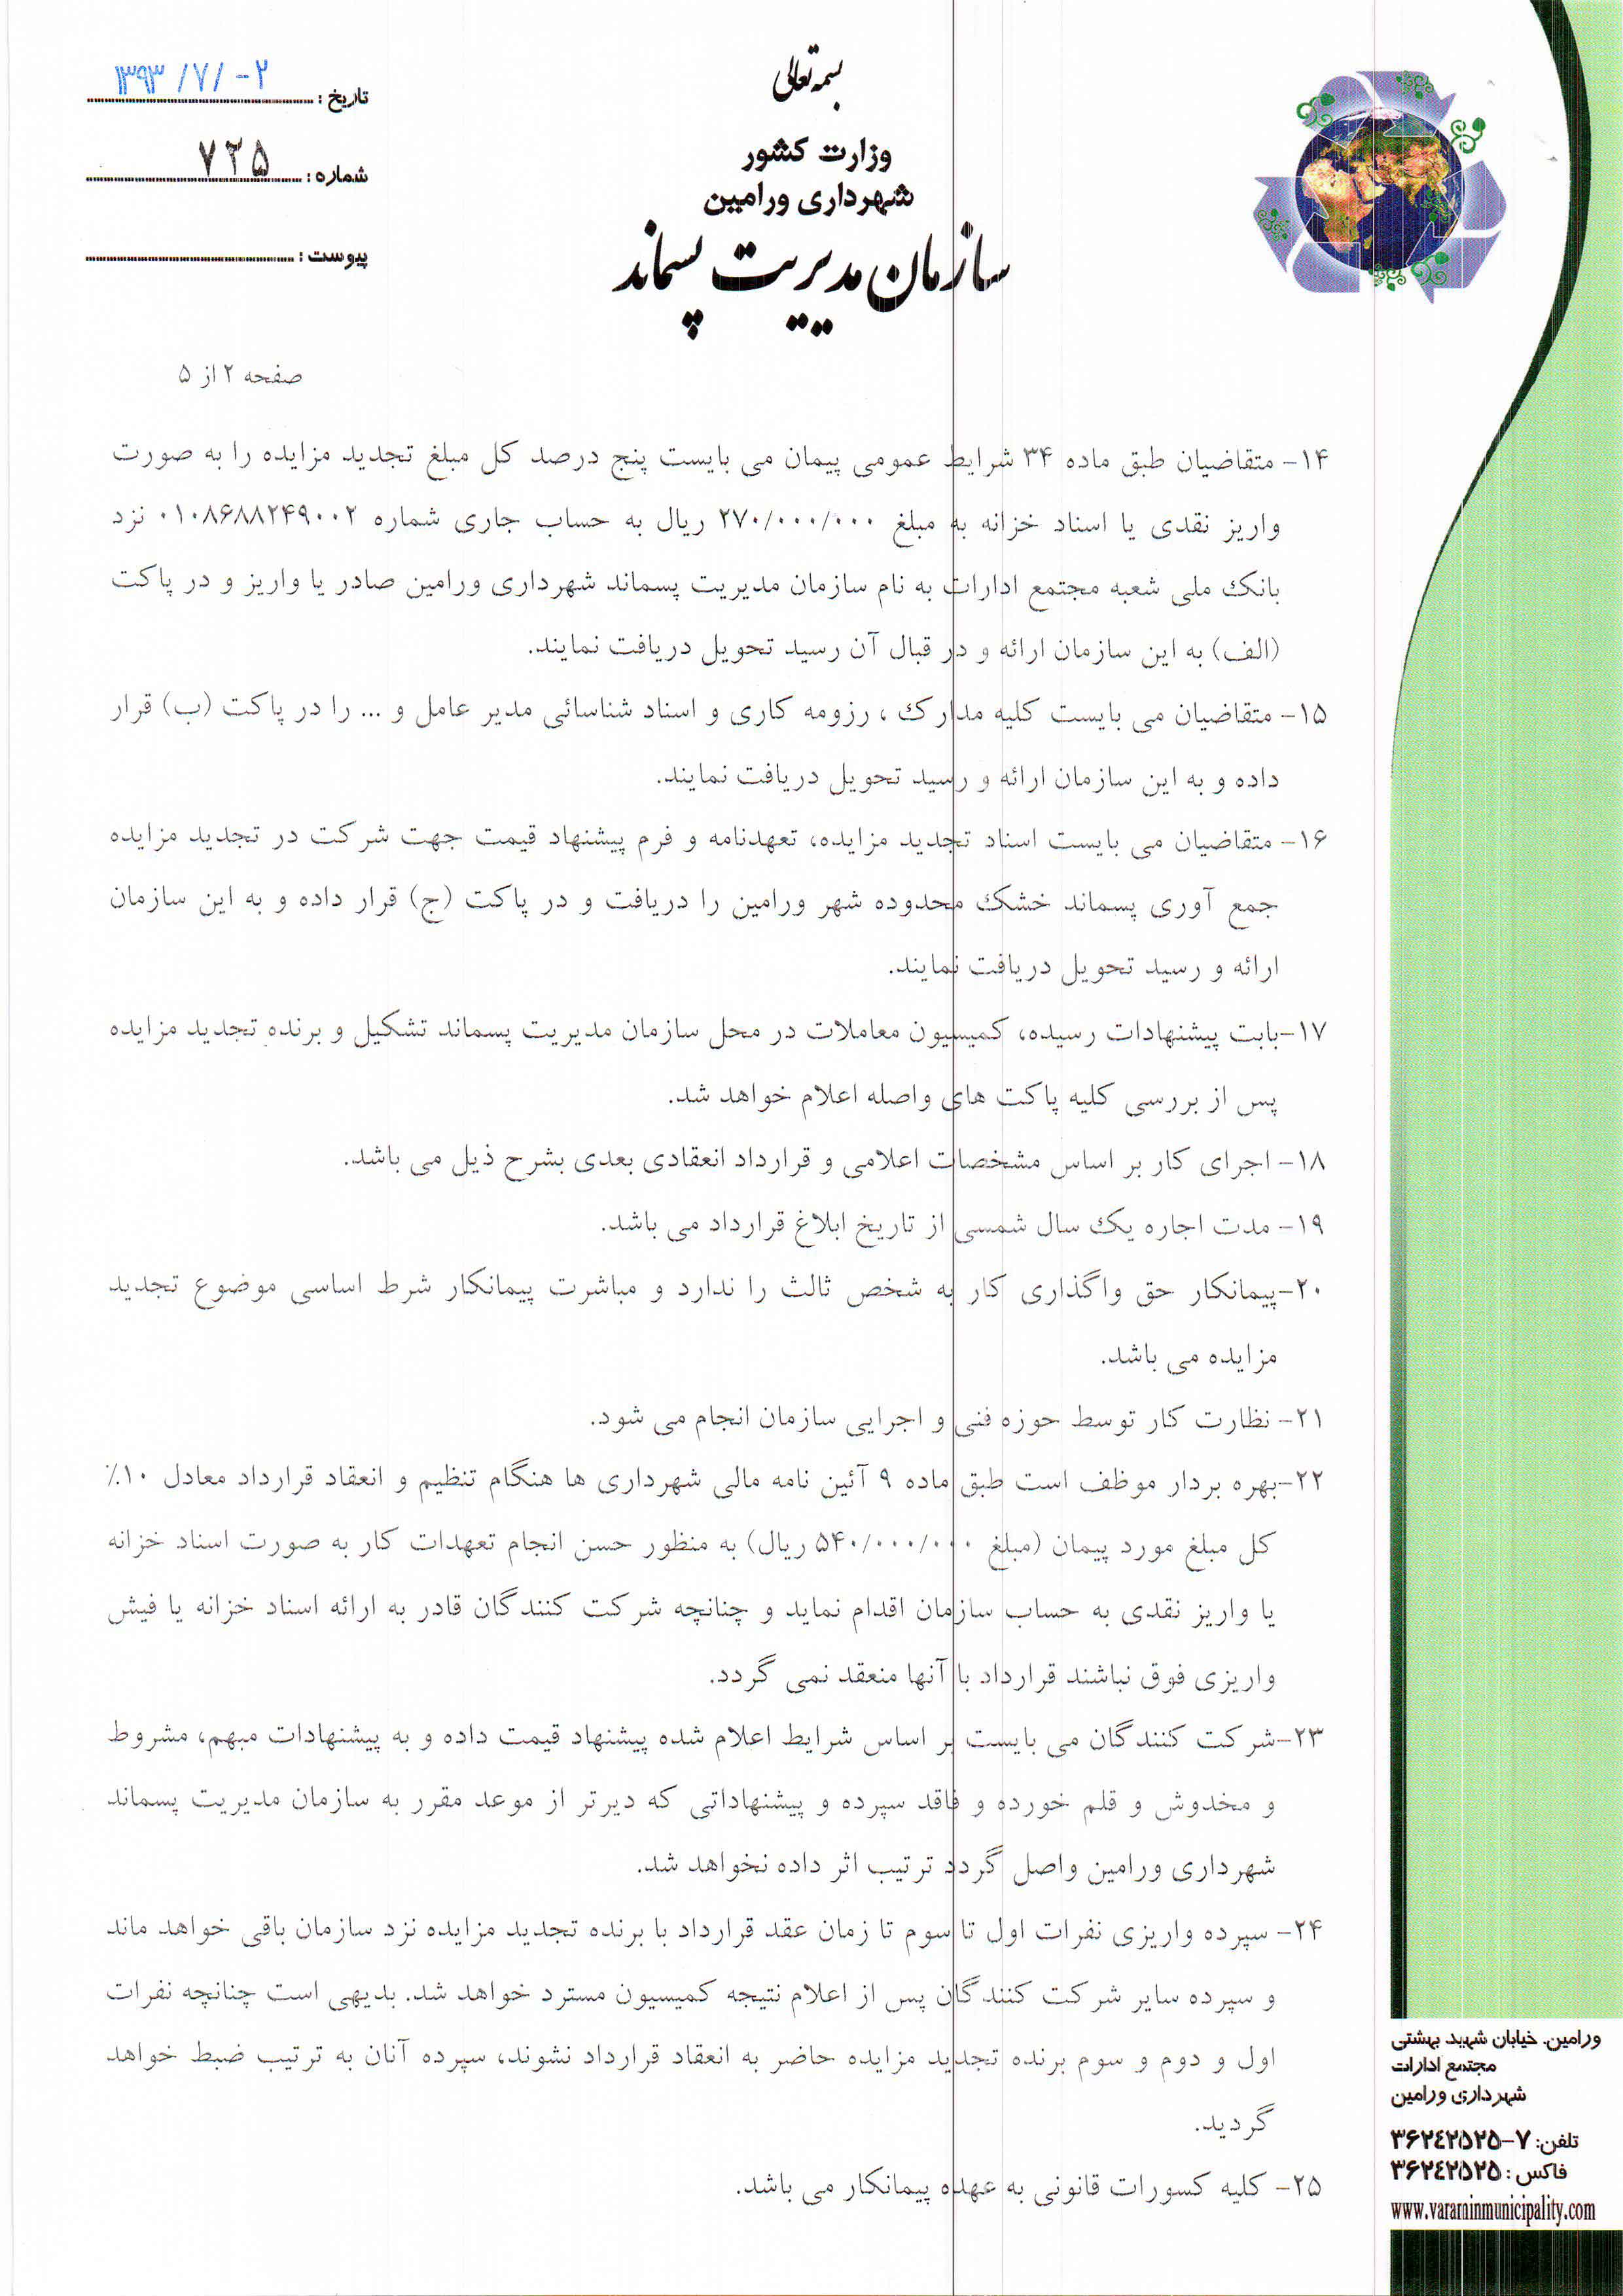 بسمه تعالی
وزارت کشور
شهرداری ورامین
سازمان مدیریت پسماند
تاریخ : ۱۳۹۳/۷/-۲
شماره : ۷۲۵
پیوست :
صفحه ۲ از ۵
۱۴- متقاضیان طبق ماده ۳۴ شرایط عمومی پیمان می بایست پنج درصد کل مبلغ تجدید مزایده را به صورت
واریز نقدی یا اسناد خزانه به مبلغ ۲۷۰/۰۰۰/۰۰۰ ریال به حساب جاری شماره ۰۱۰۸۶۸۸۲۴۹۰۰۲ نزد
بانک ملی شعبه مجتمع ادارات به نام سازمان مدیریت پسماند شهرداری ورامین صادر یا واریز و در پاکت
(الف) به این سازمان ارائه و در قبال آن رسید تحویل دریافت نمایند.
۱۵- متقاضیان می بایست کلیه مدارک ، رزومه کاری و اسناد شناسائی مدیر عامل و ... را در پاکت (ب) قرار
داده و به این سازمان ارائه و رسید تحویل دریافت نمایند.
۱۶- متقاضیان می بایست اسناد تجدید مزایده، تعهدنامه و فرم پیشنهاد قیمت جهت شرکت در تجدید مزایده
جمع آوری پسماند خشک محدوده شهر ورامین را دریافت و در پاکت (ج) قرار داده و به این سازمان
ارائه و رسید تحویل دریافت نمایند.
۱۷-بابت پیشنهادات رسیده، کمیسیون معاملات در محل سازمان مدیریت پسماند تشکیل و برنده تجدید مزایده
پس از بررسی کلیه پاکت های واصله اعلام خواهد شد.
۱۸- اجرای کار بر اساس مشخصات اعلامی و قرارداد انعقادی بعدی بشرح ذیل می باشد.
۱۹- مدت اجاره یک سال شمسی از تاریخ ابلاغ قرارداد می باشد.
۲۰-پیمانکار حق واگذاری کار به شخص ثالث را ندارد و مباشرت پیمانکار شرط اساسی موضوع تجدید
مزایده می باشد.
۲۱- نظارت کار توسط حوزه فنی و اجرایی سازمان انجام می شود.
۲۲-بهره بردار موظف است طبق ماده ۹ آئین نامه مالی شهرداری ها هنگام تنظیم و انعقاد قرارداد معادل ۱۰٪
کل مبلغ مورد پیمان (مبلغ ۵۴۰/۰۰۰/۰۰۰ ریال) به منظور حسن انجام تعهدات کار به صورت اسناد خزانه
یا واریز نقدی به حساب سازمان اقدام نماید و چنانچه شرکت کنندگان قادر به ارائه اسناد خزانه یا فیش
واریزی فوق نباشند قرارداد با آنها منعقد نمی گردد.
۲۳-شرکت کنندگان می بایست بر اساس شرایط اعلام شده پیشنهاد قیمت داده و به پیشنهادات مبهم، مشروط
و مخدوش و قلم خورده و فاقد سپرده و پیشنهاداتی که دیرتر از موعد مقرر به سازمان مدیریت پسماند
شهرداری ورامین واصل گردد ترتیب اثر داده نخواهد شد.
۲۴- سپرده واریزی نفرات اول تا سوم تا زمان عقد قرارداد با برنده تجدید مزایده نزد سازمان باقی خواهد ماند
و سپرده سایر شرکت کنندگان پس از اعلام نتیجه کمیسیون مسترد خواهد شد. بدیهی است چنانچه نفرات
اول و دوم و سوم برنده تجدید مزایده حاضر به انعقاد قرارداد نشوند، سپرده آنان به ترتیب ضبط خواهد
گردید.
۲۵- کلیه کسورات قانونی به عهده پیمانکار می باشد.
ورامین. خیابان شهید بهشتی
مجتمع ادارات
شهرداری ورامین
تلفن: ۷-۳۶۲۴۲۵۲۵
فاکس : ۳۶۲۴۲۵۲۵
www.varaminmunicipality.com